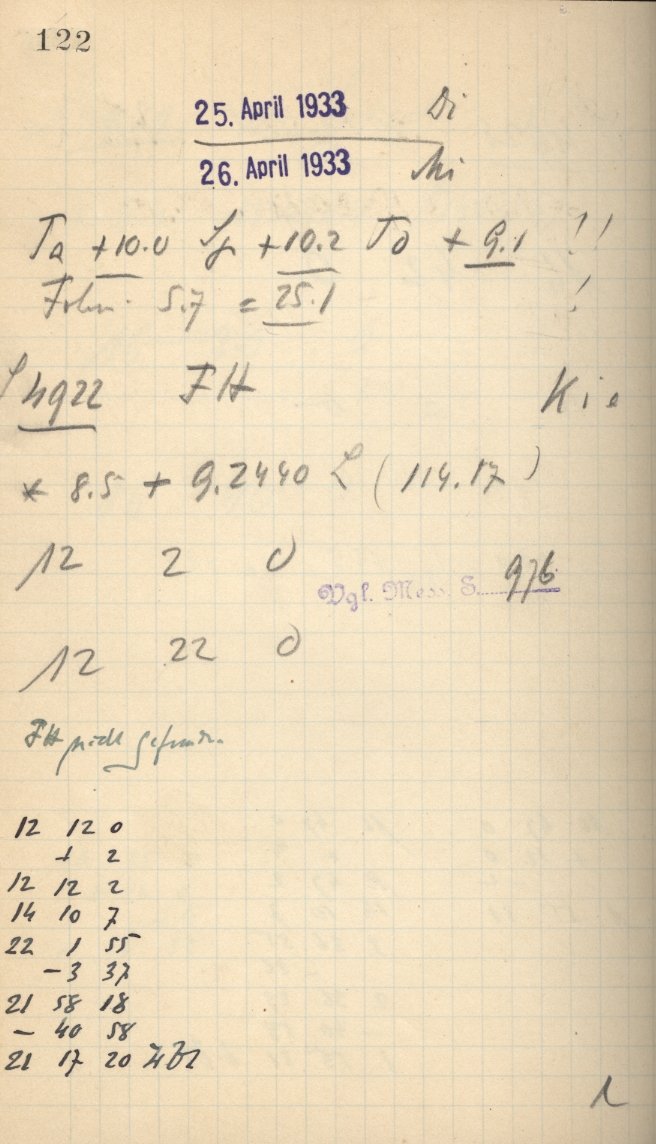 122
25. April 1933 Di
26. April 1933 Mi
Ta +10.0 +10.2 To + 9.1 !!
5.7 = 25.1 !
4922 FH Kie
* 8.5 + 9.2440 L (114.17)
12 2 0
Vgl. Mess. S. 976
12 22 0
FH nicht gefunden.
12 12 0
+ 2
12 12 2
14 10 7
22 1 55
-3 37
21 58 18
- 40 58
21 17 20
1